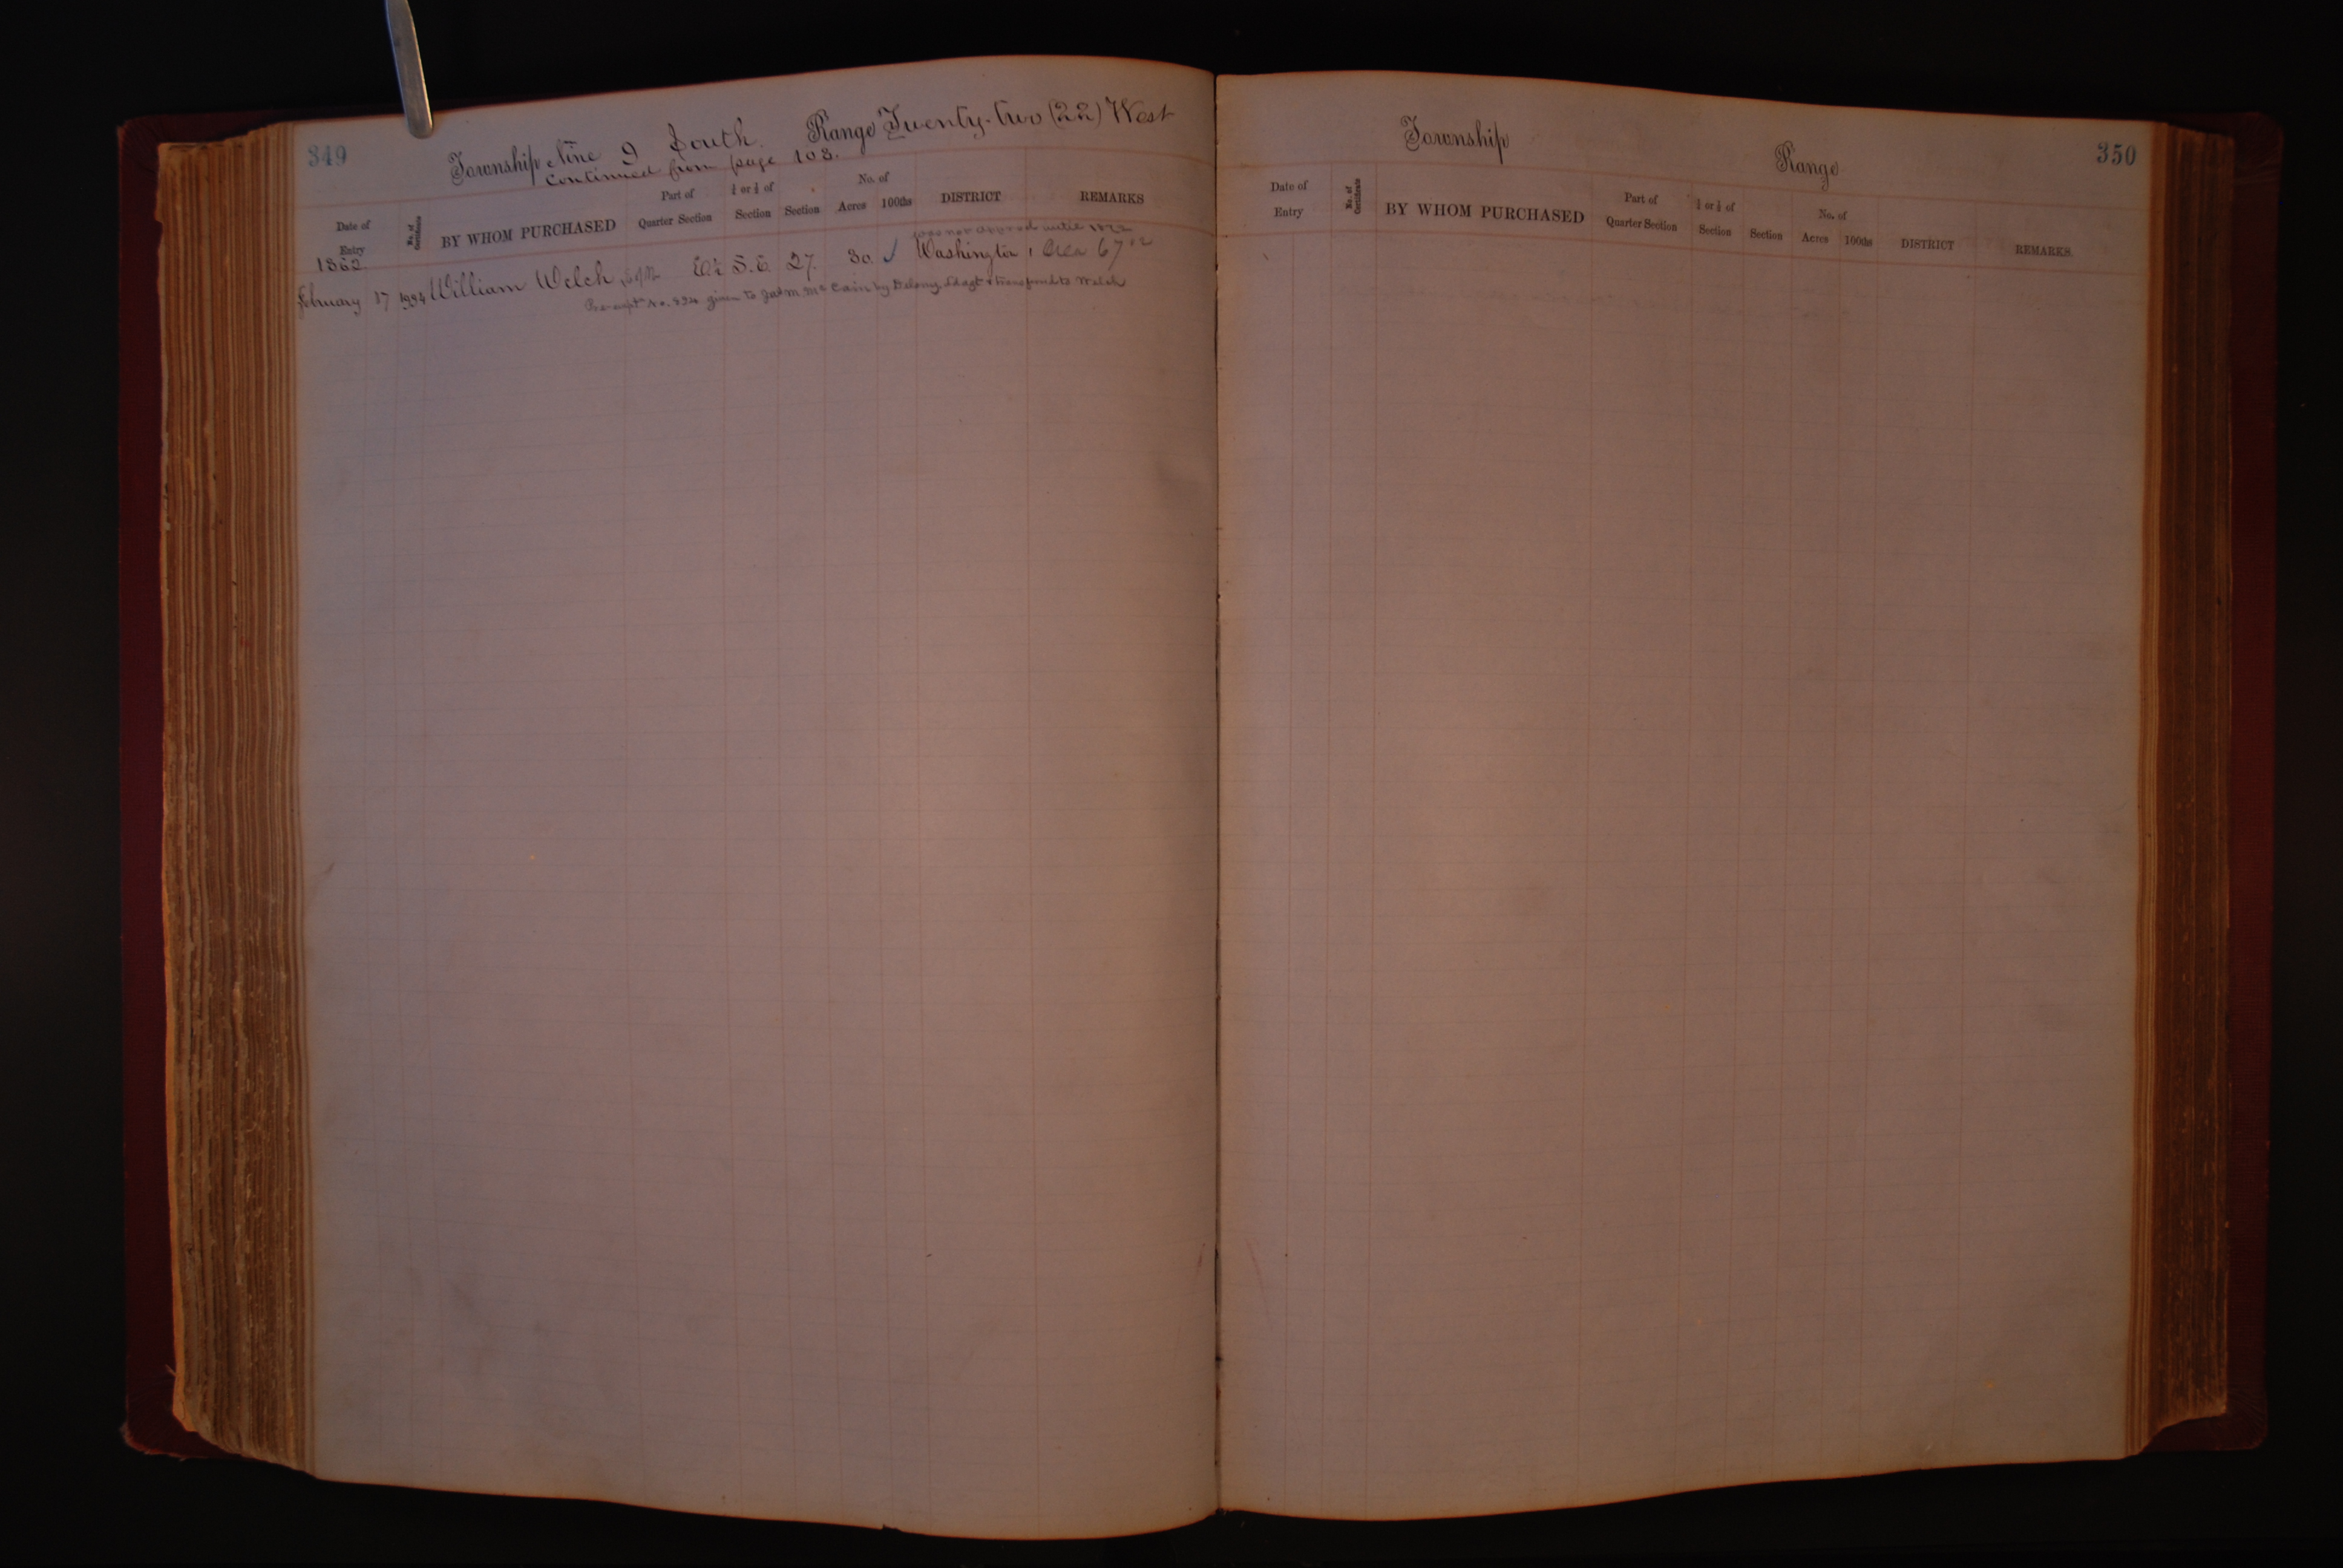 349
Township Nine 9 South. Range Twenty-two (22) West
Continued from page 103.
Date of Entry
No. of Certificate
BY WHOM PURCHASED
Part of Quarter Section
½ or ¼ of Section
Section
No. of Acres 100ths
DISTRICT
REMARKS
was not approved until
1862.
February 17 1994 William Welch E½ S.E. 27. 30. ✓ Washington Area 67
No. 894 given to McCain by Delony & transferred to Welch
Township Range 350
Date of Entry
No. of Certificate
BY WHOM PURCHASED
Part of Quarter Section
½ or ¼ of Section
Section
No. of Acres 100ths
DISTRICT
REMARKS.